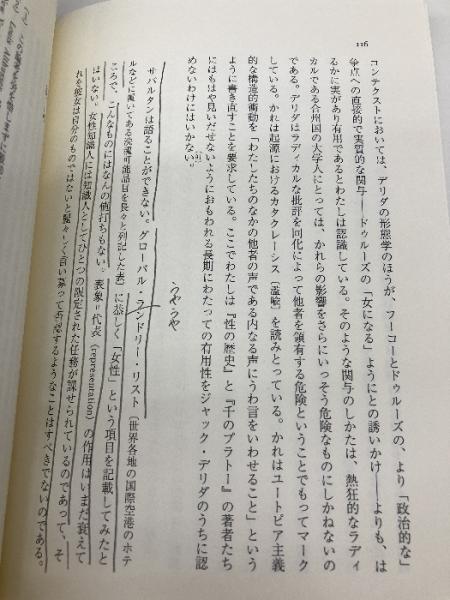 116
コンテクストにおいては、デリダの形態学のほうが、フーコーとドゥルーズの、より「政治的な」
争点への直接的で実質的な関与——ドゥルーズの「女になる」ようにとの誘いかけ——よりも、は
るかに実があり有用であるとわたしは認識している。そのような関与のしかたは、熱狂的なラディ
カルである合州国の大学人にとっては、かれらの影響をさらにいっそう危険なものにしかねないの
である。デリダはラディカルな批評を同化によって他者を領有する危険ということでもってマーク
している。かれは起源におけるカタクレーシス〔濫喩〕を読みとっている。かれはユートピア主義
的な構造的衝動を「わたしたちのなかの他者の声である内なる声にうわ言をいわせること」という
ように書き直すことを要求している。ここでわたしは『性の歴史』と『千のプラトー』の著者たち
にはもはや見いだせないようにおもわれる長期にわたっての有用性をジャック・デリダのうちに認
めないわけにはいかない。
うやうや
サバルタンは語ることができない。グローバル・ランドリー・リスト〔世界各地の国際空港のホテ
ルなどに置いてある洗濯可能品目を長々と列記した表〕に恭しく「女性」という項目を記載してみたと
ころで、こんなものにはなんの値打ちもない。表象=代表(representation)の作用はいまだ衰えて
はいない。女性知識人には知識人としてひとつの限定された任務が課せられているのであって、そ
れを彼女は自分のものではないと麗々しく言い募って否認するようなことはすべきでないのである。